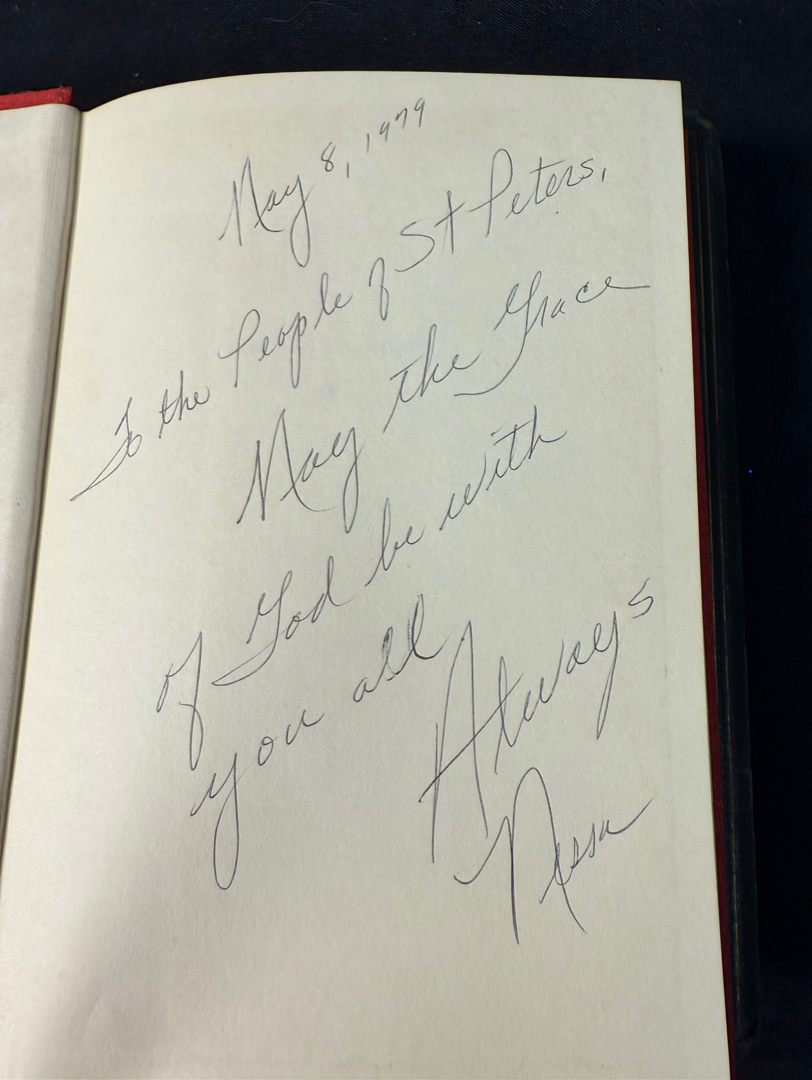 May 8, 1979
To the People of St Peters,
May the Grace
of God be with
you all
Always
Nessa